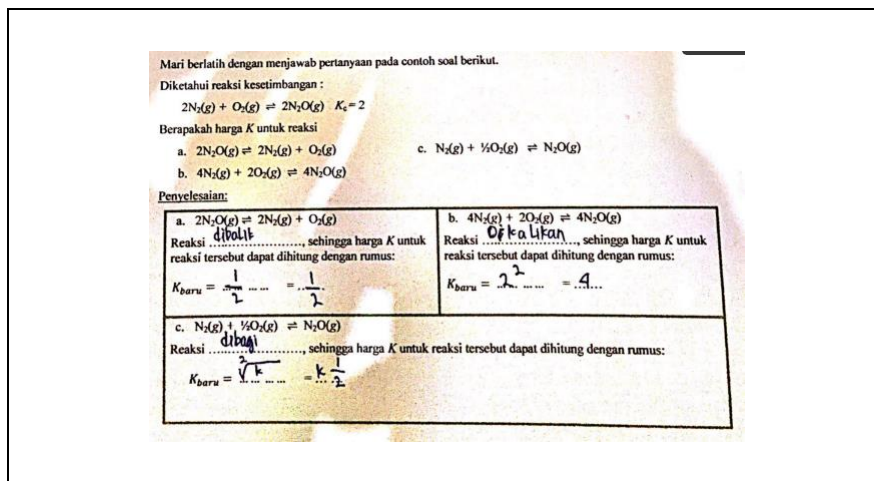 Mari berlatih dengan menjawab pertanyaan pada contoh soal berikut.
Diketahui reaksi kesetimbangan :
2N₂(g) + O₂(g) ⇌ 2N₂O(g) K꜀ = 2
Berapakah harga K untuk reaksi
a. 2N₂O(g) ⇌ 2N₂(g) + O₂(g)
c. N₂(g) + ½O₂(g) ⇌ N₂O(g)
b. 4N₂(g) + 2O₂(g) ⇌ 4N₂O(g)
Penyelesaian:
a. 2N₂O(g) ⇌ 2N₂(g) + O₂(g)
Reaksi dibalik, sehingga harga K untuk
reaksi tersebut dapat dihitung dengan rumus:
K_baru = 1/2 = 1/2
b. 4N₂(g) + 2O₂(g) ⇌ 4N₂O(g)
Reaksi Dikalikan, sehingga harga K untuk
reaksi tersebut dapat dihitung dengan rumus:
K_baru = 2² = 4
c. N₂(g) + ½O₂(g) ⇌ N₂O(g)
Reaksi dibagi, sehingga harga K untuk reaksi tersebut dapat dihitung dengan rumus:
K_baru = ²√k = k 1/2